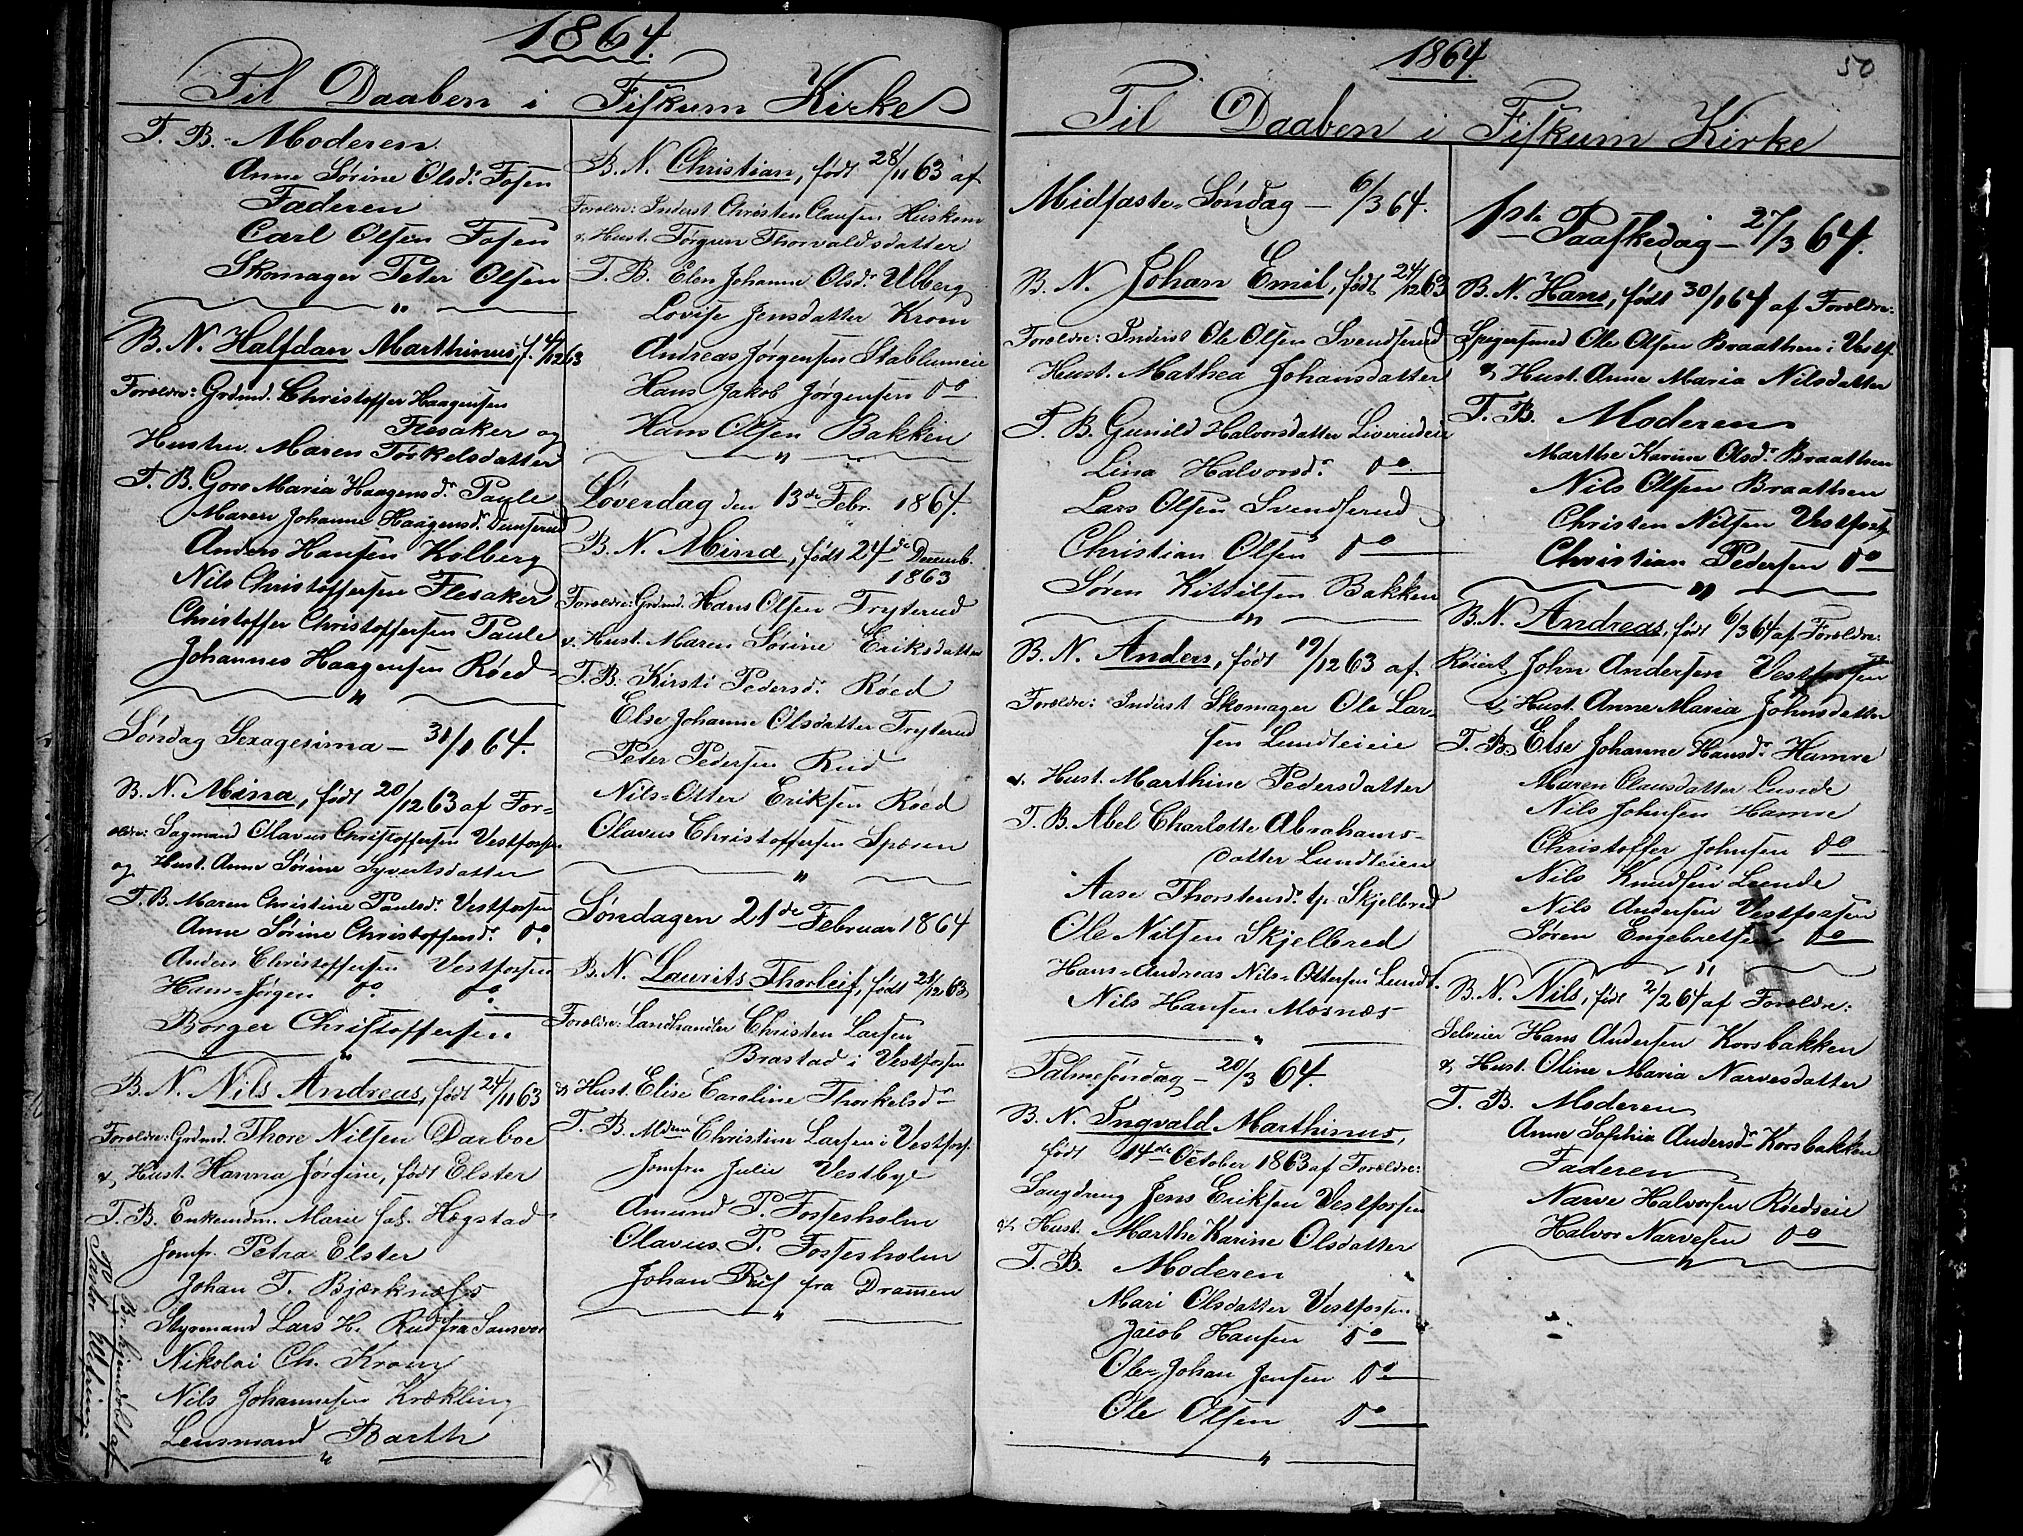 1864.
Til Daaben i Fiskum Kirke
T. B. Moderen
Anne Sørine Olsd. Fosen
Faderen
Carl Olsen Fosen
Skomager Peter Olsen
B. N. Halfdan Marthinus, f. 4/12 63
Foreldre: Grdmd. Christoffer Haagensen
Flesaker og
Hustru Maren Torkelsdatter
T. B. Goro Maria Haagensdr. Paule
Maren Johanne Haagensdr.
Anders Hansen Kolberg
Nils Christoffersen Flesaker
Christoffer Christoffersen Paule
Johannes Haagensen Røed
Søndag Sexagesima – 31/1 64.
B. N. Mina, født 20/12 63 af For-
ældre: Sagmand Olavus Christoffersen Vestfossen
og Hust. Anne Sørine Syvertsdatter
T. B. Maren Christine Paulsdr. Vestfossen
Anne Sørine Christoffersdr. do.
Anders Christoffersen Vestfossen
Hans-Jørgen do. do.
Borger Christoffersen
B. N. Nils Andreas, født 24/11 63
Foreldre: Grdmd. Thore Nilsen Darboe
& Hust. Hanna Jørgine, født Elster
T. B. Enkemdm. Marie Høgstad
Jomfr. Petra Elster
Johan T. Bjærknæss
Stygmand Lars H. Rud fra
Nikolai Ch. Krom
Nils Johannesen Krækling
Lensmand Barth
Br. hjemdøbt af
Pastor
B. N. Christian, født 28/11 63 af
Foreldre: Inderst Christen Clausen Huskom
& Hust. Jørgun Thorvaldsdatter
T. B. Elen Johanne Olsdr. Ulberg
Lovise Jensdatter Krom
Andreas Jørgensen Stablumeie
Hans Jakob Jørgensen do
Hans Olsen Bakken
Løverdag den 13de Febr. 1864.
B. N. Mina, født 24de Decemb.
1863
Foreldre: Grdmd. Hans Olsen Tryterud
& Hust. Maren Sørine Eriksdatter
T. B. Kirsti Pedersdr. Røed
Else Johanne Olsdatter Tryterud
Peter Pedersen Rud
Nils-Otter Eriksen Røed
Olavus Christoffersen Spæren
Søndagen 21de Februar 1864
B. N. Laurits Thorleif, født 28/12 63
Foreldre: Landhandler Christen Larsen
Brastad i Vestfossen
& Hust. Elise Caroline Thorkelsdr
T. B. Christine Larsen i Vestfos.
Jomfru Julie Vestbye
Amund P. Fossesholm
Olavus P. Fossesholm
Johan fra Dramen
1864
50
Til Daaben i Fiskum Kirke
Midfaste-Søndag – 6/3 64.
B. N. Johan Emil, født 24/12 63
Foreldre: Inderst Ole Olsen Svendserud
Hust. Mathea Johansdatter
T. B. Gunild Halvorsdatter Liverudeie
Lina Halvorsd. do
Lars Olsen Svendserud
Christian Olsen do
Søren Kittilsen Bakken
B. N. Anders, født 19/12 63 af
Foreldre: Inderst Skomager Ole Lar-
sen Lundteieie
& Hust. Marthine Pedersdatter
T. B. Abel Charlotte Abrahams-
datter Lundteien
Aase Thorstensdr. Skjelbred
Ole Nilsen Skjelbred
Hans-Andreas Nils-Ottersen Lundt.
Nils Hansen Mosnæs
Palmesøndag – 20/3 64.
B. N. Ingvald Marthinus,
født 14de October 1863 af Foreldre:
Jens Eriksen Vestfossen
& Hust. Marthe Karine Olsdatter
T. B. Moderen
Mari Olsdatter Vestfossen
Jacob Hansen do
Ole-Johan Jensen do
Ole Olsen do
1ste Paaskedag – 27/3 64.
B. N. Hans, født 30/1 64 af Foreldre:
Spigersmed Ole Olsen Braathen i Vestf.
& Hust. Anne Maria Nilsdatter
T. B. Moderen
Marthe Karine Olsdr. Braathen
Nils Olsen Braathen
Christen Nilsen Vestfos.
Christian Pedersen do
B. N. Andreas, født 6/3 64 af Foreldre:
John Andersen Vestfossen
& Hust. Anne Maria Johnsdatter
T. B. Else Johanne Hansdr. Hamre
Maren Clausdatter Lunde
Nils Johnsen Hamre
Christoffer Johnsen do
Nils Knudsen Lunde
Nils Andersen Vestfossen
Søren Engebretsen do
B. N. Nils, født 2/2 64 af Foreldre:
Selveier Hans Andersen Korsbakken
& Hust. Oline Maria Narvesdatter
T. B. Moderen
Anne Sophia Andersdr. Korsbakken
Faderen
Narve Halvorsen Røedseie
Halvor Narvesen do